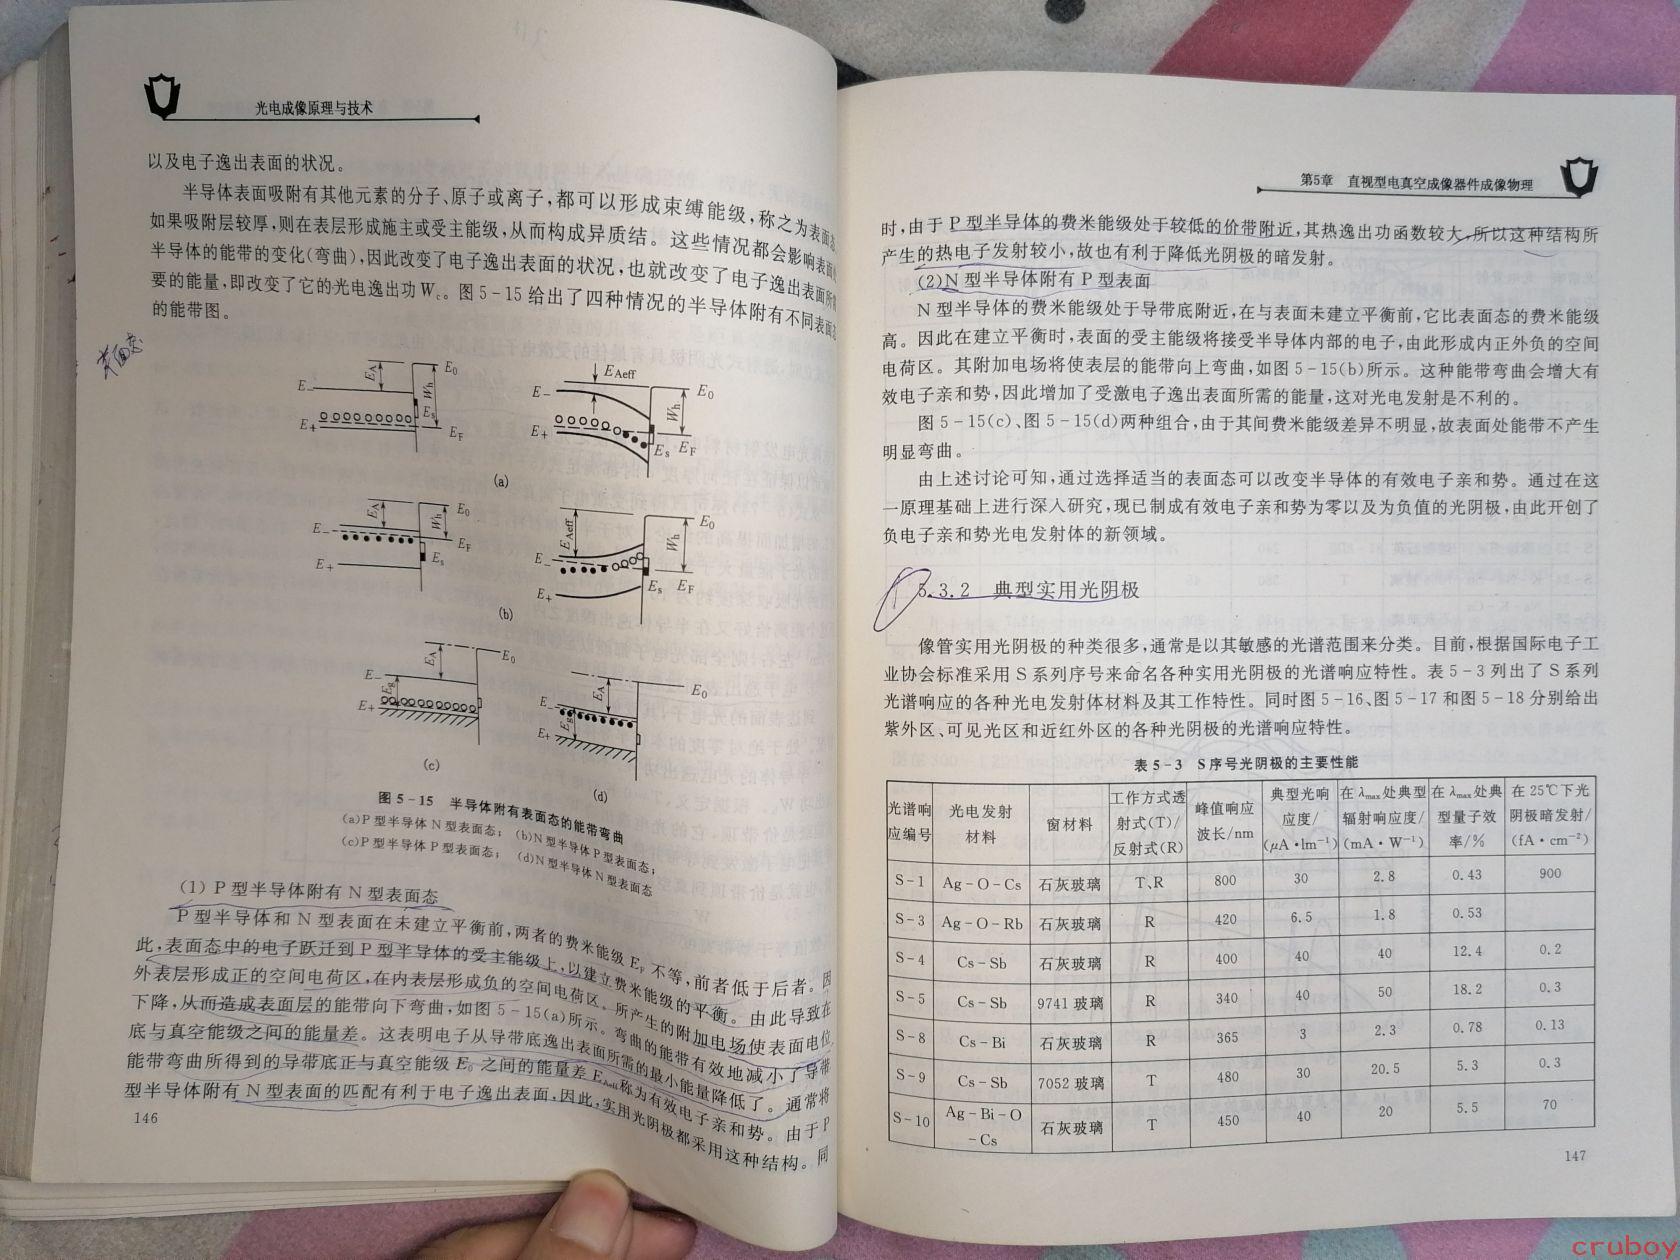 光电成像原理与技术
以及电子逸出表面的状况。
半导体表面吸附有其他元素的分子、原子或离子,都可以形成束缚能级,称之为表面态
如果吸附层较厚,则在表层形成施主或受主能级,从而构成异质结。这些情况都会影响表面
半导体的能带的变化(弯曲),因此改变了电子逸出表面的状况,也就改变了电子逸出表面所
要的能量,即改变了它的光电逸出功Wc。图5-15给出了四种情况的半导体附有不同表面态
的能带图。
表面态
EA E0 Wh E- Es E+ EF
EAeff E- E0 Wh E+ Es EF
(a)
EA E0 Wh E- EF Es E+
EAeff E0 Wh E- Es EF E+
(b)
EA E0 E- Eg E+
(c)
EA E0 E- Eg E+
(d)
图5-15 半导体附有表面态的能带弯曲
(a)P型半导体N型表面态; (b)N型半导体P型表面态;
(c)P型半导体P型表面态; (d)N型半导体N型表面态
(1) P型半导体附有N型表面态
P型半导体和N型表面在未建立平衡前,两者的费米能级EF不等,前者低于后者。因
此,表面态中的电子跃迁到P型半导体的受主能级上,以建立费米能级的平衡。由此导致在
外表层形成正的空间电荷区,在内表层形成负的空间电荷区。所产生的附加电场使表面电位
下降,从而造成表面层的能带向下弯曲,如图5-15(a)所示。弯曲的能带有效地减小了导带
底与真空能级之间的能量差。这表明电子从导带底逸出表面所需的最小能量降低了。通常将
能带弯曲所得到的导带底正与真空能级E0之间的能量差EAeff称为有效电子亲和势。由于P
型半导体附有N型表面的匹配有利于电子逸出表面,因此,实用光阴极都采用这种结构。同
146
第5章 直视型电真空成像器件成像物理
时,由于P型半导体的费米能级处于较低的价带附近,其热逸出功函数较大,所以这种结构所
产生的热电子发射较小,故也有利于降低光阴极的暗发射。
(2)N型半导体附有P型表面
N型半导体的费米能级处于导带底附近,在与表面未建立平衡前,它比表面态的费米能级
高。因此在建立平衡时,表面的受主能级将接受半导体内部的电子,由此形成内正外负的空间
电荷区。其附加电场将使表层的能带向上弯曲,如图5-15(b)所示。这种能带弯曲会增大有
效电子亲和势,因此增加了受激电子逸出表面所需的能量,这对光电发射是不利的。
图5-15(c)、图5-15(d)两种组合,由于其间费米能级差异不明显,故表面处能带不产生
明显弯曲。
由上述讨论可知,通过选择适当的表面态可以改变半导体的有效电子亲和势。通过在这
一原理基础上进行深入研究,现已制成有效电子亲和势为零以及为负值的光阴极,由此开创了
负电子亲和势光电发射体的新领域。
5.3.2 典型实用光阴极
像管实用光阴极的种类很多,通常是以其敏感的光谱范围来分类。目前,根据国际电子工
业协会标准采用S系列序号来命名各种实用光阴极的光谱响应特性。表5-3列出了S系列
光谱响应的各种光电发射体材料及其工作特性。同时图5-16、图5-17和图5-18分别给出
紫外区、可见光区和近红外区的各种光阴极的光谱响应特性。
表5-3 S序号光阴极的主要性能
光谱响应编号 光电发射材料 窗材料 工作方式透射式(T)/反射式(R) 峰值响应波长/nm 典型光响应度/(μA·lm⁻¹) 在λmax处典型辐射响应度/(mA·W⁻¹) 在λmax处典型量子效率/% 在25℃下光阴极暗发射/(fA·cm⁻²)
S-1 Ag-O-Cs 石灰玻璃 T、R 800 30 2.8 0.43 900
S-3 Ag-O-Rb 石灰玻璃 R 420 6.5 1.8 0.53
S-4 Cs-Sb 石灰玻璃 R 400 40 40 12.4 0.2
S-5 Cs-Sb 9741玻璃 R 340 40 50 18.2 0.3
S-8 Cs-Bi 石灰玻璃 R 365 3 2.3 0.78 0.13
S-9 Cs-Sb 7052玻璃 T 480 30 20.5 5.3 0.3
S-10 Ag-Bi-O-Cs 石灰玻璃 T 450 40 20 5.5 70
147
cruboy